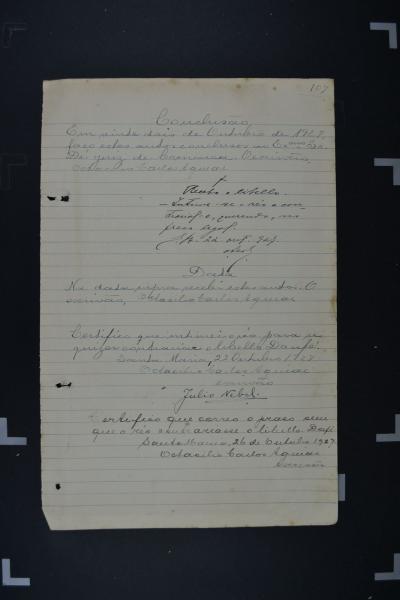 107
Conclusão
Em vinte dois de Outubro de 1927,
faço estes autos conclusos ao Exmo Snr.
Dr. juiz de Comarca. O escrivão,
Octacilio Carlos Aguiar
Recebo o libello.
Intime-se o réo a con-
trarial-o, querendo, no
prazo legal.
22
Data
Na data supra recebi estes autos. O
escrivão, Octacilio Carlos Aguiar
Certifico que intimei o réo para si
quizer contrariar o libello. Doufé.
Santa Maria, 22 Outubro 1927
Octacilio Carlos Aguiar
escrivão
Julio Nebel
Certifico que correu o praso sem
que o réo contrariasse o libello. Doufé
Santa Maria, 26 de Outubro 1927.
Octacilio Carlos Aguiar
escrivão